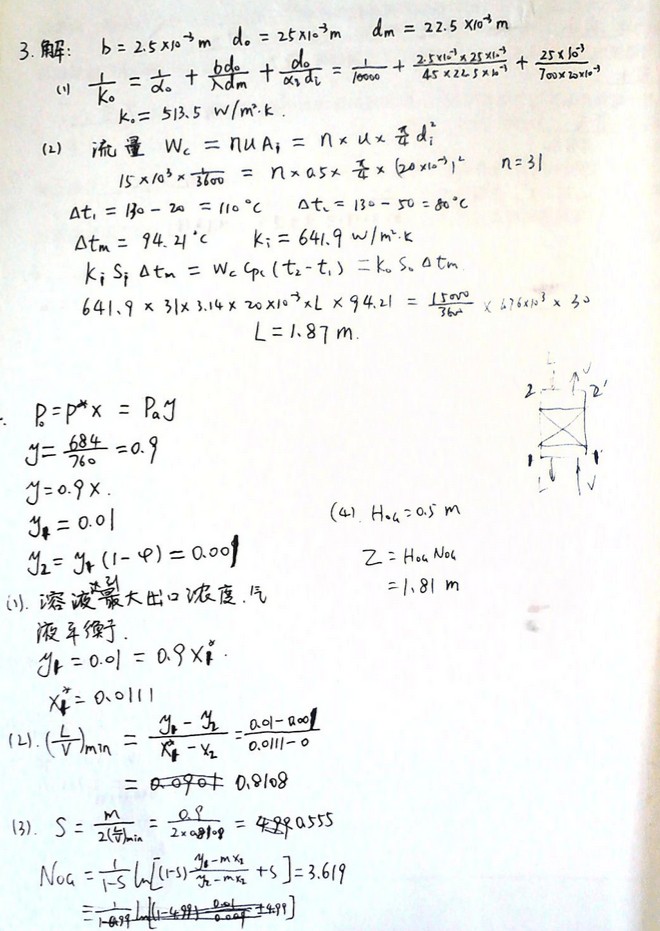 3. 解: b = 2.5×10⁻³ m d₀ = 25×10⁻³ m dm = 22.5×10⁻³ m
(1) 1/K₀ = 1/α₀ + bd₀/λdm + d₀/α₂di = 1/10000 + 2.5×10⁻³×25×10⁻³/45×22.5×10⁻³ + 25×10⁻³/700×20×10⁻³
K₀ = 513.5 W/m²·K.
(2) 流量 Wc = nuAi = n×u×π/4 di²
15×10³×1/3600 = n×0.5×π/4×(20×10⁻³)² n=31
Δt₁ = 130-20 = 110°C Δt₂ = 130-50=80°C
Δtm = 94.21°C Ki = 641.9 W/m²·K
Ki Si Δtm = Wc Cpc (t₂-t₁) = K₀ S₀ Δtm
641.9×31×3.14×20×10⁻³×L×94.21 = 15000/3600 × 1.76×10³ × 30
L = 1.87 m.
P₀=P*x = Pay
y = 684/760 = 0.9
y = 0.9x.
y₁ = 0.01
y₂ = y₁(1-φ) = 0.001
(1). 溶液达到最大出口浓度.气
液平衡.
y₁ = 0.01 = 0.9x₁*.
x₁* = 0.0111
(2). (L/V)min = y₁-y₂/x₁*-x₂ = 0.01-0.001/0.0111-0
= 0.0901 0.8108
(3). S = m/2(L/V)min = 0.9/2×0.8108 = 4.99 0.555
NOG = 1/1-S ln[(1-S) y₁-mx₂/y₂-mx₂ + S] = 3.619
(4). HOG=0.5 m
Z = HOG NOG
= 1.81 m
2 L V 2'
1 L V 1'